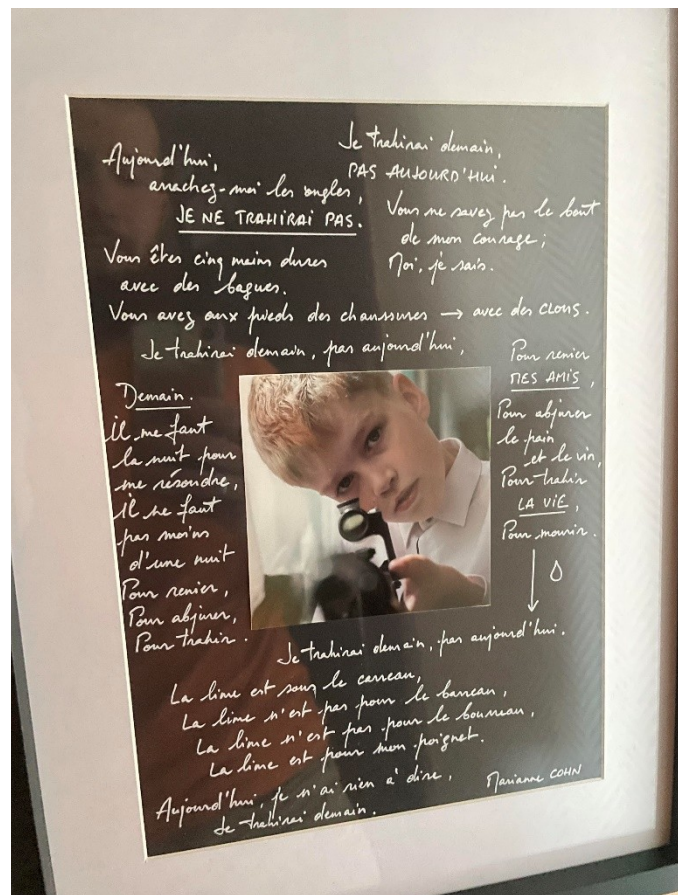 Je trahirai demain,
PAS AUJOURD'HUI.
Aujourd'hui,
arrachez-moi les ongles,
JE NE TRAHIRAI PAS.
Vous ne savez pas le bout
de mon courage ;
Moi, je sais.
Vous êtes cinq mains dures
avec des bagues.
Vous avez aux pieds des chaussures → avec des CLOUS.
Je trahirai demain, pas aujourd'hui,
Demain.
il me faut
la nuit pour
me résoudre,
il ne faut
pas moins
d'une nuit
Pour renier,
Pour abjurer,
Pour trahir.
Pour renier
MES AMIS,
Pour abjurer
le pain
et le vin,
Pour trahir
LA VIE,
Pour mourir.
Je trahirai demain, pas aujourd'hui.
La lime est sous le carreau,
La lime n'est pas pour le barreau,
La lime n'est pas pour le bourreau,
La lime est pour mon poignet.
Aujourd'hui, je n'ai rien à dire,
Je trahirai demain.
Marianne COHN